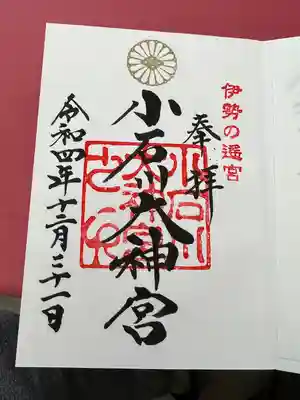 伊勢の遥宮
奉拝
小石川大神宮
令和四年十二月三十一日